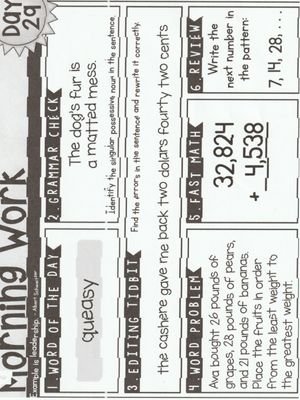 Morning Work
Day
29
Example is leadership. - Albert Schweitzer
1. WORD OF THE DAY
queasy
2. GRAMMAR CHECK
The dog's fur is
a matted mess.
Identify the singular possessive noun in the sentence.
3. EDITING TIDBIT
Find the errors in the sentence and rewrite it correctly.
the cashere gave me back two dollars fourty two cents
4. WORD PROBLEM
Ava bought 26 pounds of
grapes, 28 pounds of pears,
and 21 pounds of bananas.
Place the fruits in order
from the least weight to
the greatest weight.
5. FAST MATH
32,824
+ 4,538
6. REVIEW
Write the
next number in
the pattern:
7, 14, 28, . . .